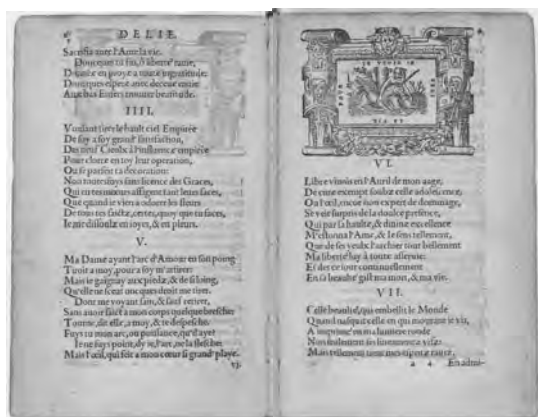 DELIE.
Sacrifia auec l'Ame la vie.
Doncques tu fus, ô liberté rauie,
Donnée en proye a toute ingratitude:
Doncques espere auec deceue enuie
Aux bas Enfers trouuer beatitude.
IIII.
Voulant tirer le hault ciel Empirée
De soy a soy grand' satisfaction,
Des neuf Cieulx à l'influence empirée
Pour clorre en toy leur operation,
Ou se parfeit ta decoration:
Non toutesfoys sans licence des Graces,
Qui en tes mœurs affigent tant leurs faces,
Que quand ie vien a odorer les fleurs
De tous tes faictz, certes, quoy que tu faces,
Ie me dissoulz en ioyes, & en pleurs.
V.
Ma Dame ayant l'arc d'Amour en son poing
Tiroit a moy, pour a soy m'attirer:
Mais ie gaignay aux piedz, & de si loing,
Qu'elle ne sceut oncques droit me tirer.
Dont me voyant sain, & sauf retirer,
Sans auoir faict a mon corps quelque bresche:
Tourne, dit elle, a moy, & te despesche.
Fuys tu mon arc, ou puissance, qu'il aye?
Ie ne fuys point, dy ie, l'arc, ne la flesche:
Mais l'œil, qui feit a mon cœur si grand' playe.
POVR
LE VEOIR IE
PERS
LA VIE
VI.
Libre viuois en l'Auril de mon aage,
De cure exempt soubz celle adolescence,
Ou l'œil, encor non expert de dommage,
Se veit surpris de la doulce presence,
Qui par sa haulte, & diuine excellence
M'estonna l'Ame, & le sens tellement,
Que de ses yeulx l'archier tout bellement
Ma liberté luy à toute asseruie:
Et des ce iour continuellement
En sa beaulté gist ma mort, & ma vie.
VII.
Celle beaulté, qui embellit le Monde
Quand nasquit celle en qui mourant ie vis,
A imprimé en ma lumiere ronde
Non seulement ses lineamentz vifz:
Mais tellement tient mes espritz rauiz,
a 4 En admi-